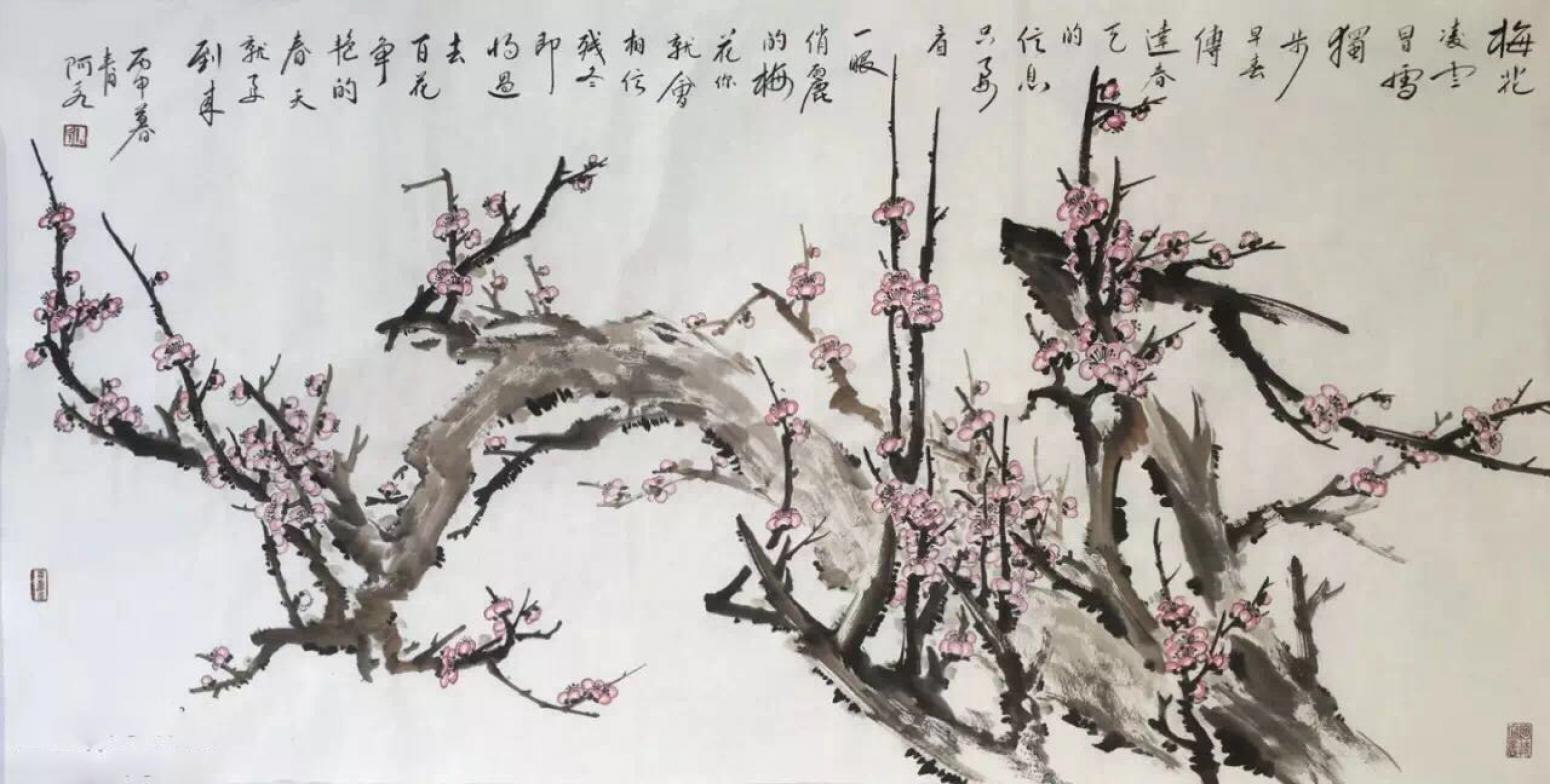 梅花
凌寒
冒雪
獨
步
早春
傳
達春
天
的
信息
只要
看
一眼
俏麗
的梅
花你
就會
相信
残冬
即
將過
去
百花
争
艳的
春天
就要
到来
丙申暮